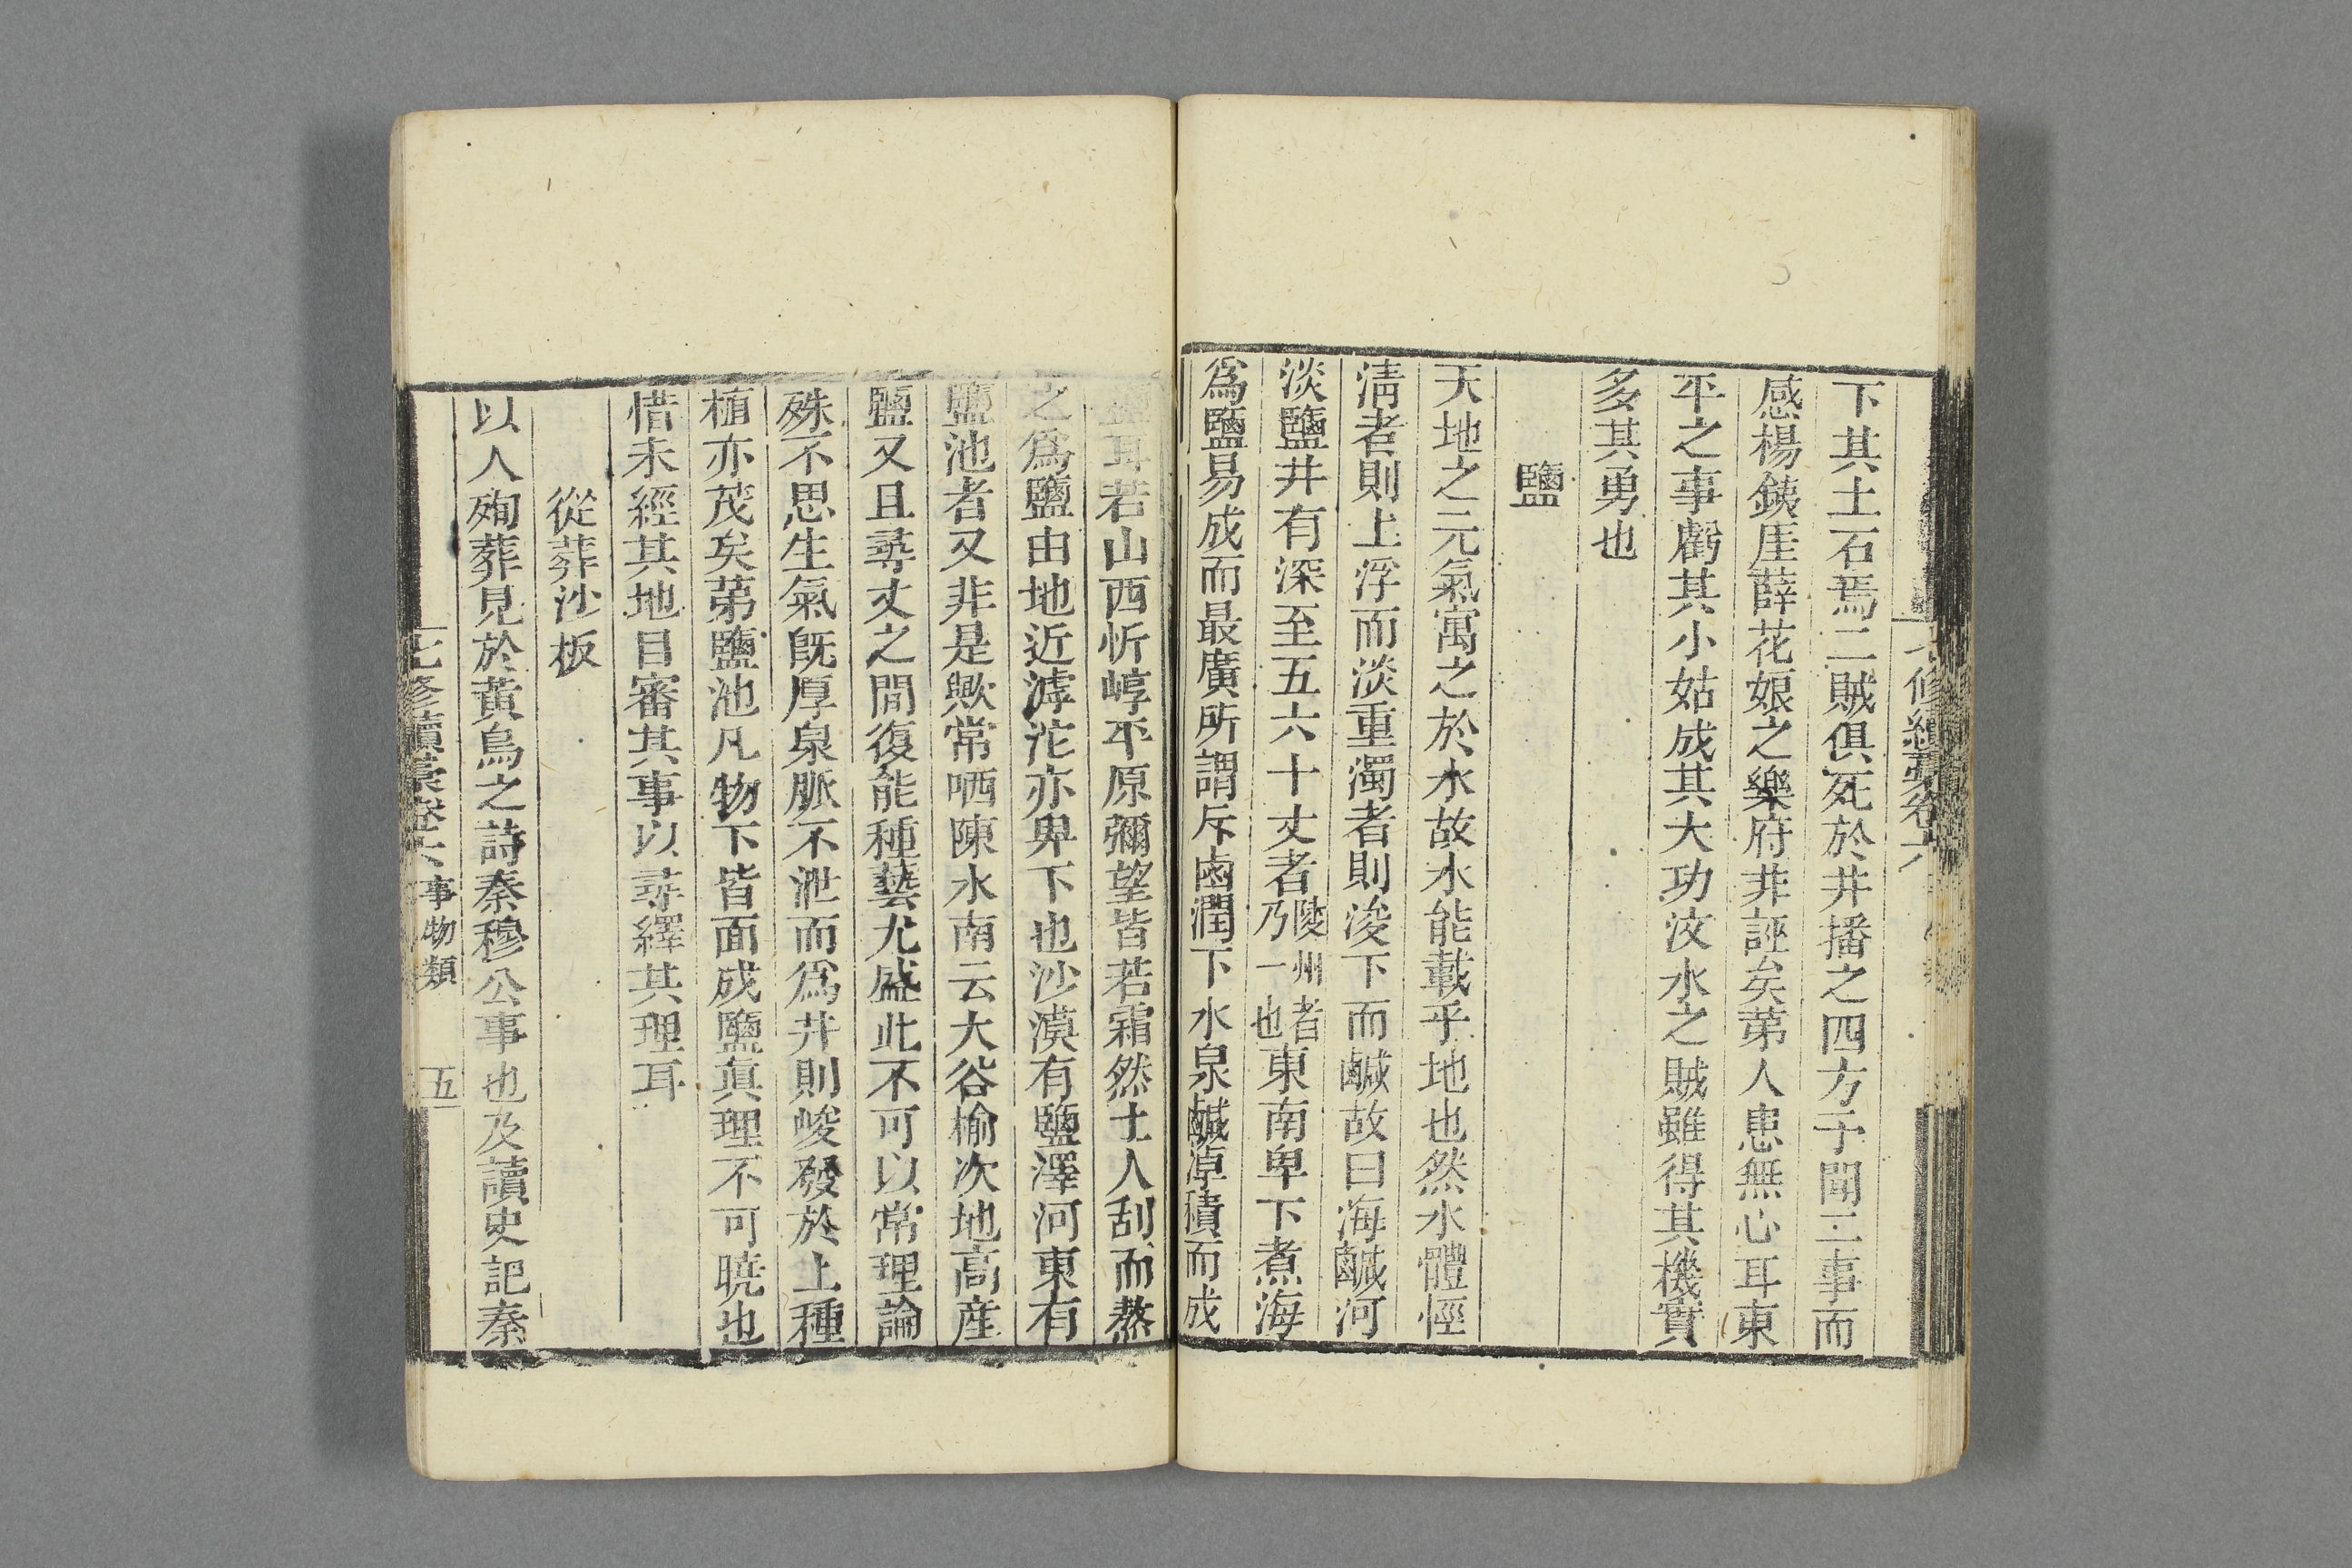 七修續藁卷六
下其土石焉二賊俱死於井播之四方予聞二事而
感楊鐵厓薛花娘之樂府非誣矣苐人患無心耳東
平之事虧其小姑成其大功汶水之賊雖得其機實
多其勇也
鹽
天地之元氣寓之於水故水能載乎地也然水體輕
清者則上浮而淡重濁者則浚下而鹹故曰海鹹河
淡鹽井有深至五六十丈者陵州者乃一也東南卑下煮海
爲鹽易成而最廣所謂斥鹵潤下水泉鹹淖積而成
耳若山西忻崞平原彌望皆若霜然土人刮而熬
之爲鹽由地近滹沱亦卑下也沙漠有鹽澤河東有
鹽池者又非是歟常哂陳水南云大谷榆次地高産
鹽又且尋丈之間復能種藝尤盛此不可以常理論
殊不思生氣旣厚泉脈不泄而爲井則峻發於上種
植亦茂矣苐鹽池凡物下皆面成鹽眞理不可暁也
惜未經其地目審其事以尋繹其理耳
從葬沙板
以人殉葬見於黃鳥之詩秦穆公事也及讀史記秦
七修續藁卷六 事物類 五